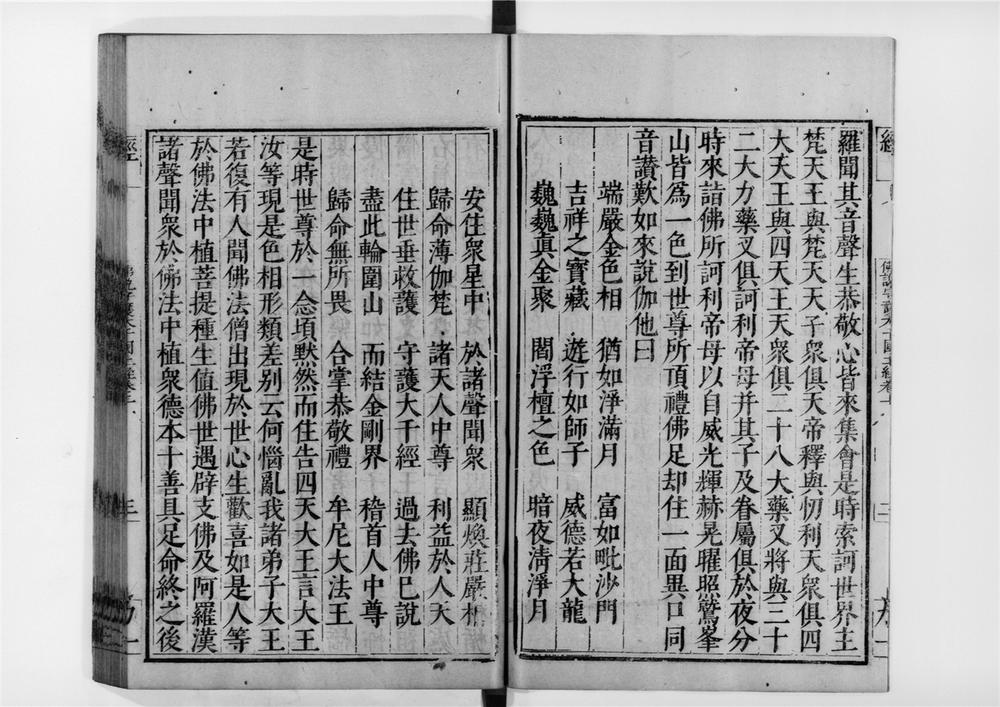 羅聞其音聲生恭敬心皆來集會是時索訶世界主
梵天王與梵天天子衆俱天帝釋與忉利天衆俱四
大天王與四天王天衆俱二十八大藥叉將與三十
二大力藥叉俱訶利帝母并其子及眷屬俱於夜分
時來詣佛所訶利帝母以自威光輝赫晃曜照鷲峯
山皆爲一色到世尊所頂禮佛足却住一面異口同
音讃歎如來說伽他曰
端嚴金色相 猶如淨滿月 富如毗沙門
吉祥之寶藏 遊行如師子 威德若大龍
巍巍真金聚 閻浮檀之色 暗夜淸淨月
安住衆星中 於諸聲聞衆 顯煥莊嚴相
歸命薄伽梵 諸天人中尊 利益於人天
住世垂救護 守護大千經 過去佛已說
盡此輪圍山 而結金剛界 稽首人中尊
歸命無所畏 合掌恭敬禮 牟尼大法王
是時世尊於一念頃默然而住告四天大王言大王
汝等現是色相形類差别云何惱亂我諸弟子大王
若復有人聞佛法僧出現於世心生歡喜如是人等
於佛法中植菩提種生值佛世遇辟支佛及阿羅漢
諸聲聞衆於佛法中植衆德本十善具足命終之後